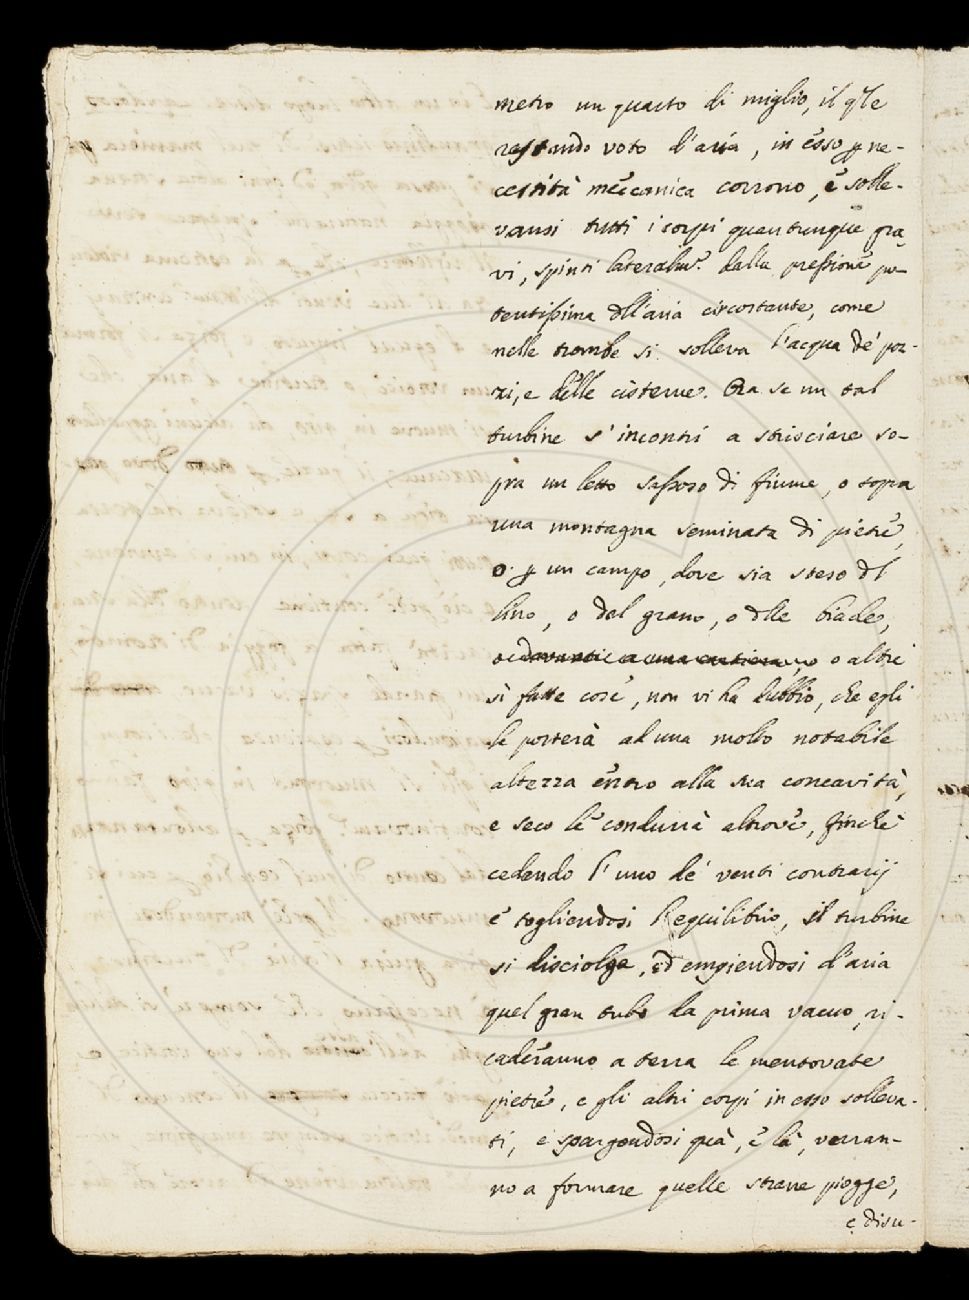 metro un quarto di miglio, il qle
restando voto d'aria, in esso p ne-
cessità meccanica corrono, e solle-
vansi tutti i corpi quantunque gra-
vi, spinti lateralme. dalla pressione po-
tentissima dll'aria circostante, come
nelle trombe si solleva l'acqua de' poz-
zi, e delle cisterne. Ora se un tal
turbine s'incontri a strisciare so-
pra un letto sassoso di fiume, o sopra
una montagna seminata di pietre,
o p un campo, dove sia steso dl
lino, o del grano, o dlle biade,
o altre
sì fatte cose, non vi ha dubbio, che egli
le porterà ad una molto notabile
altezza entro alla sua concavità,
e seco le condurrà altrove, finchè
cedendo l'uno de' venti contrarij
e togliendosi l'equilibrio, il turbine
si disciolga, ed empiendosi d'aria
quel gran tubo da prima vacuo, ri-
caderanno a terra le mentovate
pietre, e gli altri corpi in esso solleva-
ti, e spargendosi quà, e là, verran-
no a formare quelle strane piogge,
e disu-